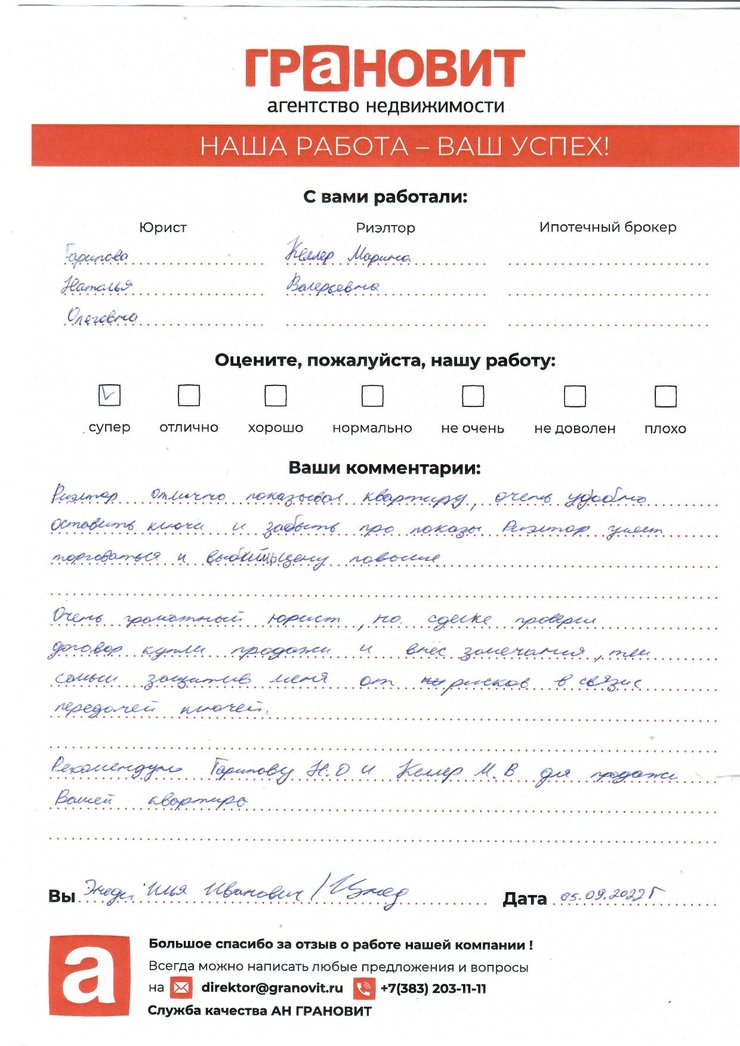 ГРаНОВИТ
агентство недвижимости
НАША РАБОТА – ВАШ УСПЕХ!
С вами работали:
Юрист Риэлтор Ипотечный брокер
Гарипова Келлер Марина
Наталья Валерьевна
Олеговна
Оцените, пожалуйста, нашу работу:
супер отлично хорошо нормально не очень не доволен плохо
Ваши комментарии:
Риэлтор отлично показывал квартиру, очень удобно
оставить ключи и забыть про показы Риэлтор умеет
торговаться и выбить цену повыше
Очень грамотный юрист, на сделке проверил
договор купли продажи и внёс замечания, тем
самым защитив меня от рисков в связи с
передачей ключей.
Рекомендую Гарипову Н.О и Келлер М.В для продажи
Вашей квартиры
Вы Илья Иванович Дата 05.09.2022г
а Большое спасибо за отзыв о работе нашей компании !
Всегда можно написать любые предложения и вопросы
на direktor@granovit.ru +7(383) 203-11-11
Служба качества АН ГРАНОВИТ